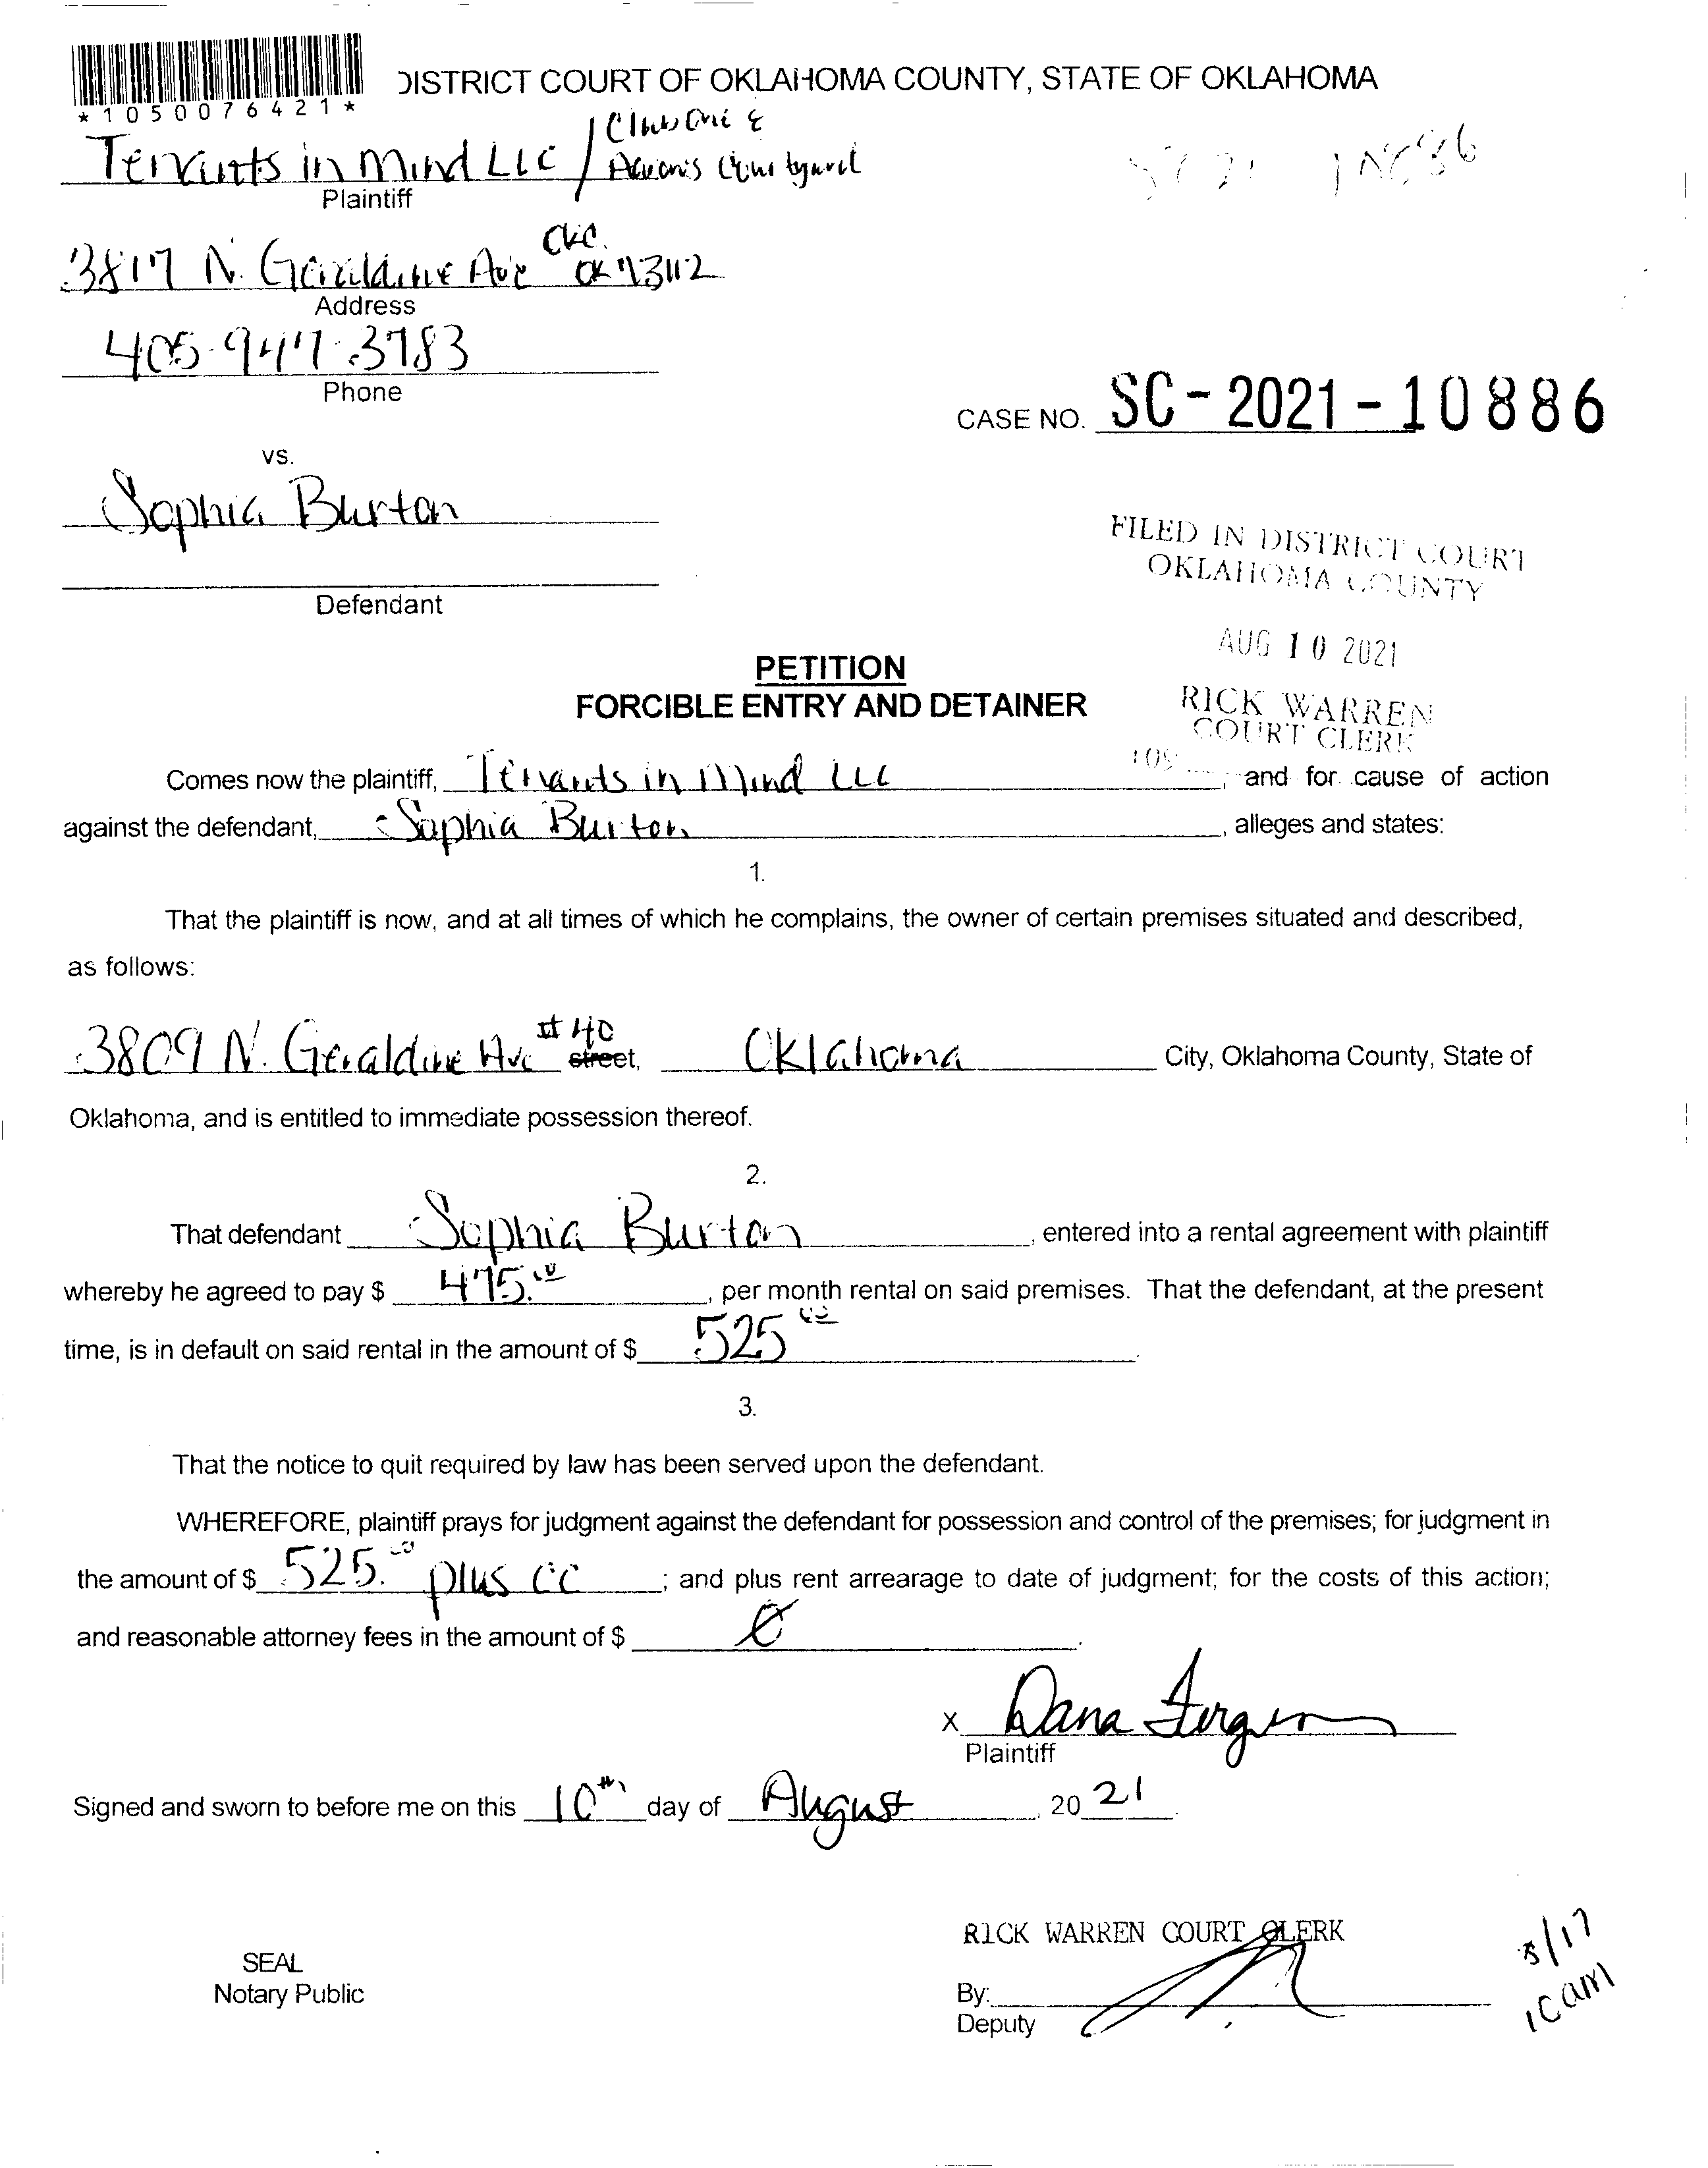 DISTRICT COURT OF OKLAHOMA COUNTY, STATE OF OKLAHOMA
*1050076421*
Tenants in Mind LLC /
Plaintiff
3817 N. Geraldine Ave OKC. OK 73112
Address
405-947-3783
Phone
CASE NO. SC-2021-10886
vs.
Sophia Burton
Defendant
FILED IN DISTRICT COURT
OKLAHOMA COUNTY
AUG 10 2021
RICK WARREN
COURT CLERK
PETITION
FORCIBLE ENTRY AND DETAINER
Comes now the plaintiff, Tenants in Mind LLC, and for cause of action
against the defendant, Sophia Burton, alleges and states:
1.
That the plaintiff is now, and at all times of which he complains, the owner of certain premises situated and described,
as follows:
3809 N. Geraldine Ave #40 street, Oklahoma City, Oklahoma County, State of
Oklahoma, and is entitled to immediate possession thereof.
2.
That defendant Sophia Burton, entered into a rental agreement with plaintiff
whereby he agreed to pay $ 475.00, per month rental on said premises. That the defendant, at the present
time, is in default on said rental in the amount of $ 525 00.
3.
That the notice to quit required by law has been served upon the defendant.
WHEREFORE, plaintiff prays for judgment against the defendant for possession and control of the premises; for judgment in
the amount of $ 525.00 plus CC; and plus rent arrearage to date of judgment; for the costs of this action;
and reasonable attorney fees in the amount of $ 0.
x Dana Ferguson
Plaintiff
Signed and sworn to before me on this 10th day of August, 2021.
RICK WARREN COURT CLERK
SEAL
Notary Public
By:
Deputy
8/17
10am